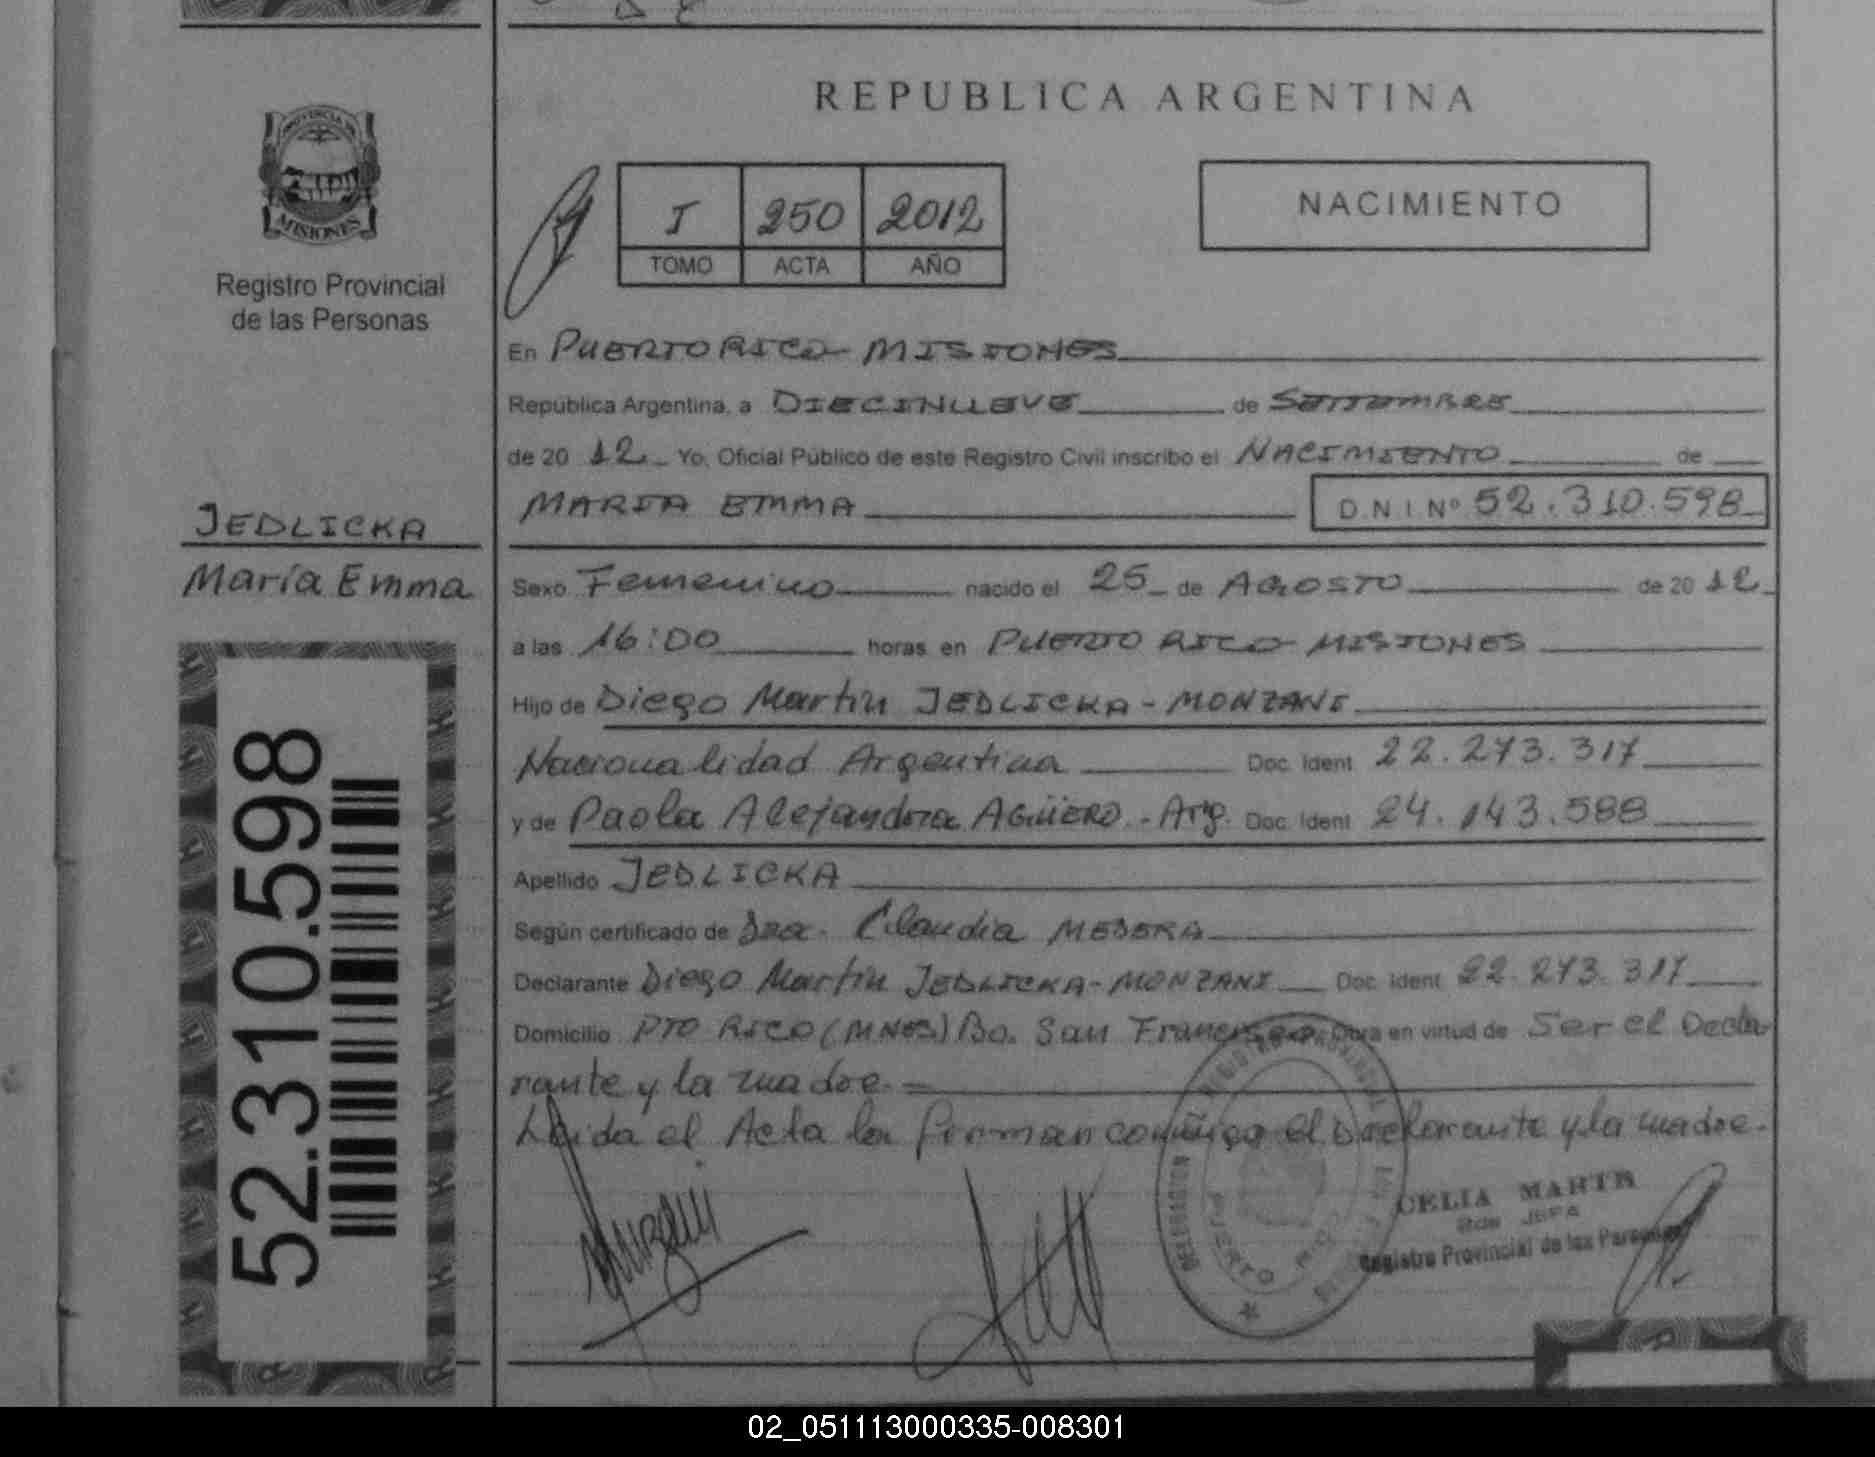 REPUBLICA ARGENTINA
PROVINCIA DE
MISIONES
Registro Provincial
de las Personas
I 250 2012
TOMO ACTA AÑO
NACIMIENTO
En PUERTO RICO - MISIONES
República Argentina, a DIECINUEVE de SETIEMBRE
de 20 12 Yo, Oficial Público de este Registro Civil inscribo el NACIMIENTO de
MARIA EMMA D.N.I. Nº 52.310.598
JEDLICKA
María Emma
Sexo Femenino nacido el 25 de AGOSTO de 20 12
a las 16:00 horas en PUERTO RICO - MISIONES
Hijo de Diego Martin JEDLICKA - MONZANI
Nacionalidad Argentina Doc. Ident 22.273.317
y de Paola Alejandra AGÜERO - Arg. Doc. Ident 24.143.588
Apellido JEDLICKA
Según certificado de Dra. Claudia MEDERA
Declarante Diego Martin JEDLICKA - MONZANI Doc. Ident 22.273.317
Domicilio PTO RICO (MNES) Bo. San Francisco Obra en virtud de Ser el Decla-
rante y la madre.
Leida el Acta la firman conmigo el Declarante y la madre.
52.310.598
CELIA
JEFA
Registro Provincial de las Personas
DELEGACION
PUERTO RICO
02_051113000335-008301